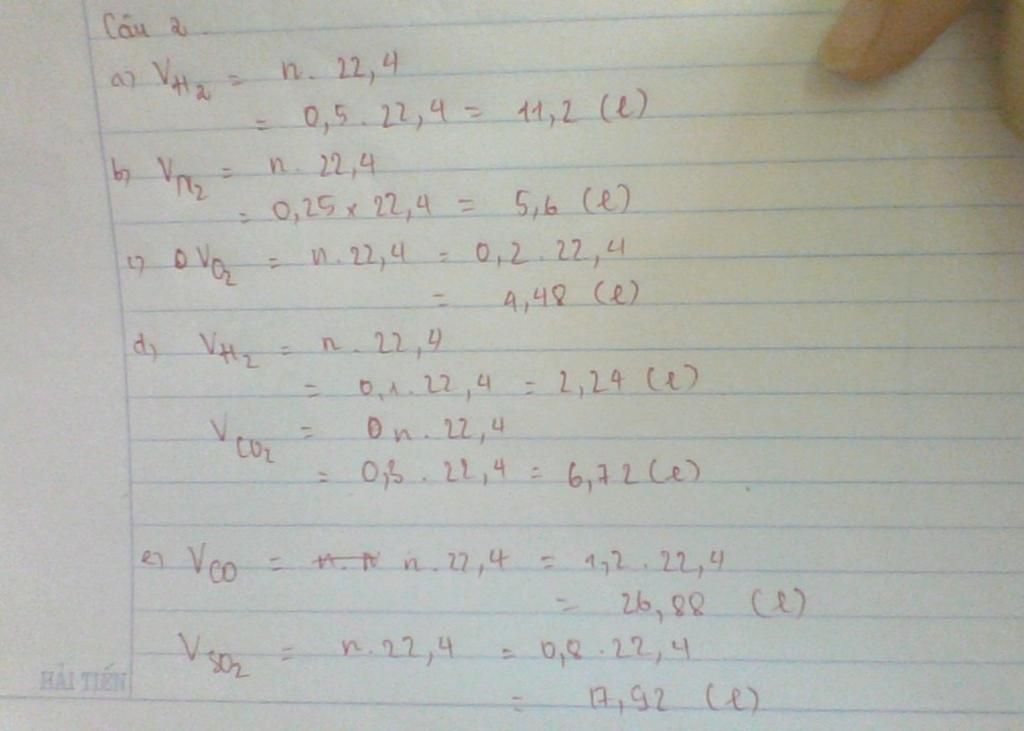 Câu 2.
a) VH2 = n. 22,4
= 0,5. 22,4 = 11,2 (l)
b) VN2 = n. 22,4
= 0,25 x 22,4 = 5,6 (l)
c) VO2 = n. 22,4 = 0,2. 22,4
= 4,48 (l)
d) VH2 = n. 22,4
= 0,1. 22,4 = 2,24 (l)
VCO2 = n. 22,4
= 0,3. 22,4 = 6,72 (l)
e) VCO = n. 22,4 = 1,2. 22,4
= 26,88 (l)
VSO2 = n. 22,4 = 0,8. 22,4
= 17,92 (l)
HẢI TIẾN